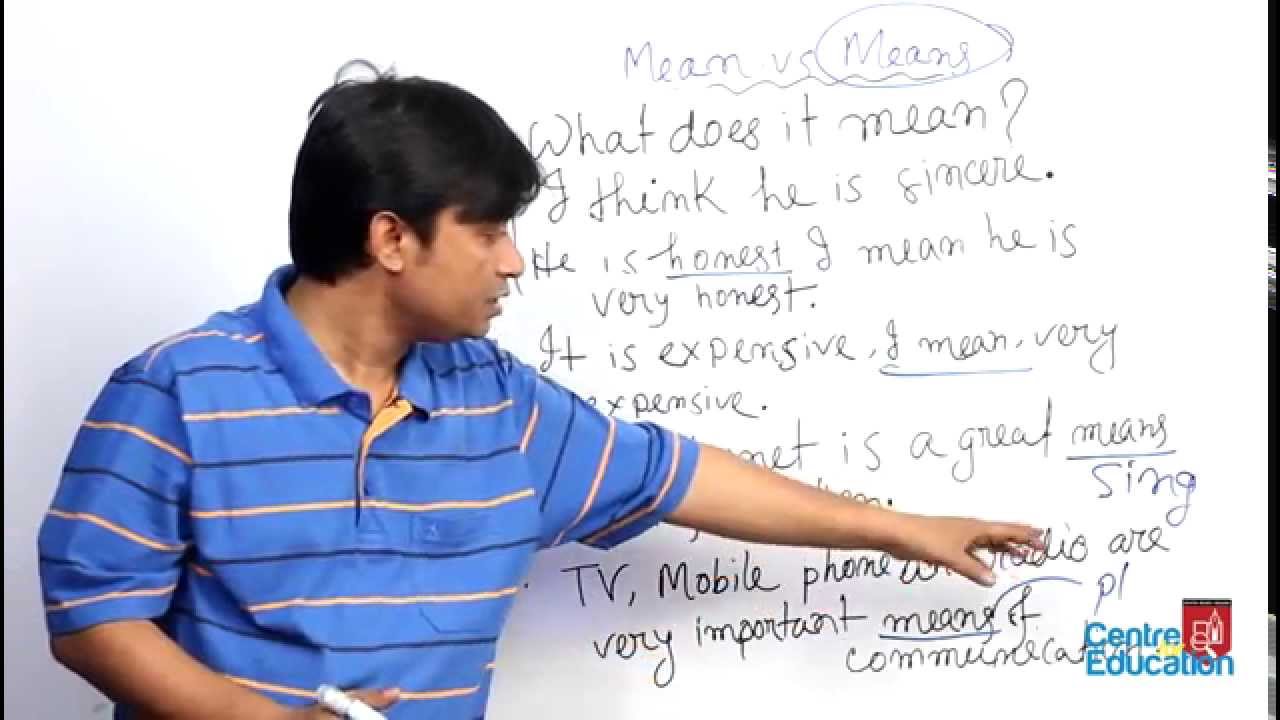 Mean vs Means
What does it mean?
I think he is sincere.
He is honest I mean he is
very honest.
It is expensive, I mean, very
expensive.
is a great means
sing
radio are
TV, Mobile phone
pl
very important means of
communication
Centre
for
Education